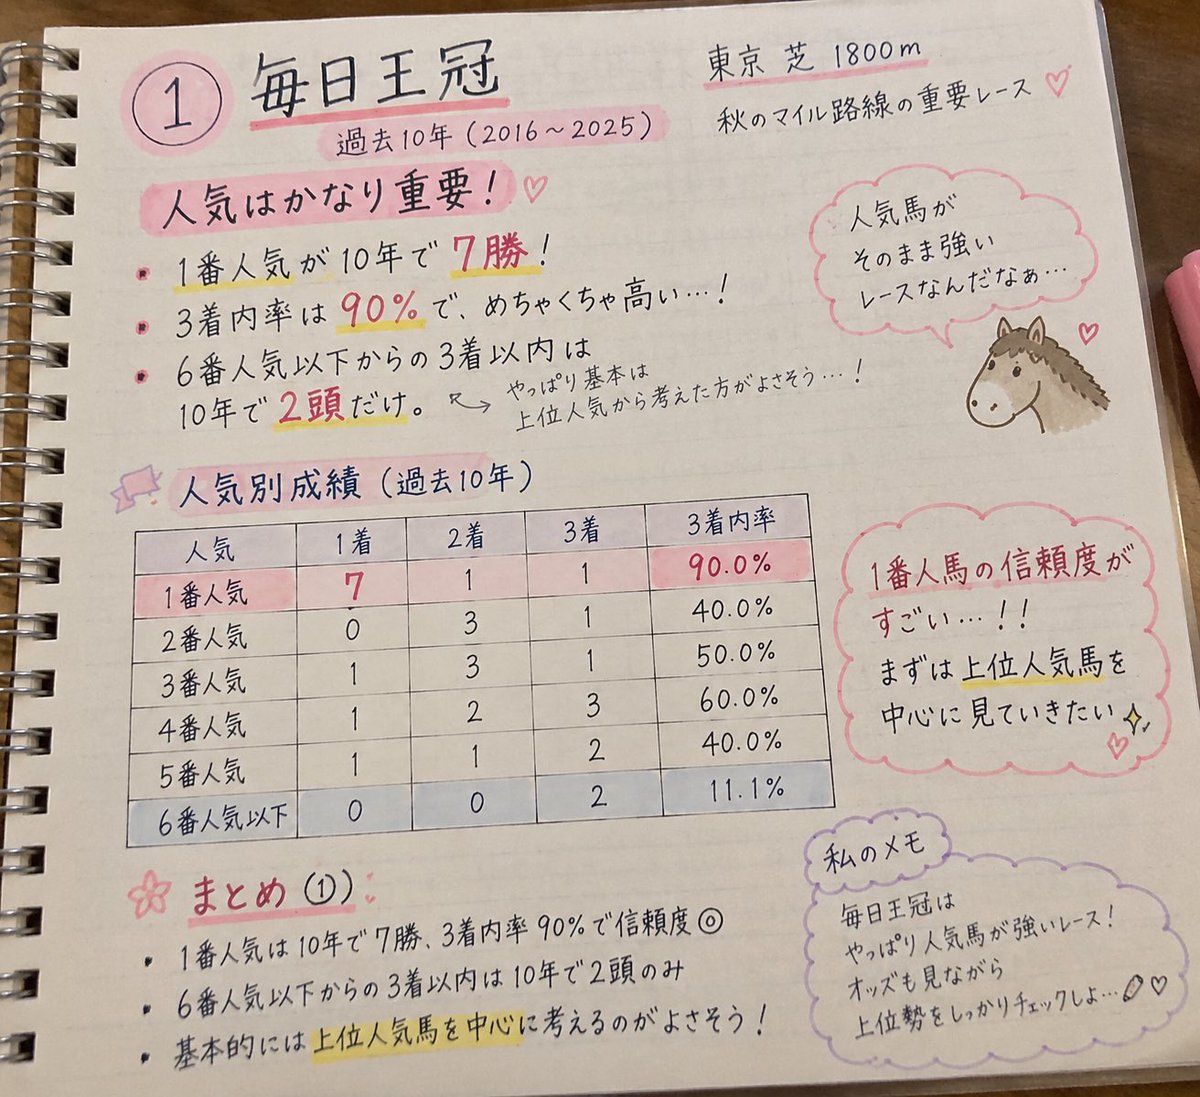 ① 毎日王冠
過去10年(2016～2025)
東京 芝 1800m
秋のマイル路線の重要レース
人気はかなり重要!
・1番人気が10年で7勝!
・3着内率は90%で、めちゃくちゃ高い…!
・6番人気以下からの3着以内は
10年で2頭だけ。
やっぱり基本は
上位人気から考えた方がよさそう…!
人気馬が
そのまま強い
レースなんだなぁ…
人気別成績(過去10年)
人気 1着 2着 3着 3着内率
1番人気 7 1 1 90.0%
2番人気 0 3 1 40.0%
3番人気 1 3 1 50.0%
4番人気 1 2 3 60.0%
5番人気 1 1 2 40.0%
6番人気以下 0 0 2 11.1%
1番人馬の信頼度が
すごい…!!
まずは上位人気馬を
中心に見ていきたい
まとめ(①)
・1番人気は10年で7勝、3着内率90%で信頼度◎
・6番人気以下からの3着以内は10年で2頭のみ
・基本的には上位人気馬を中心に考えるのがよさそう!
私のメモ
毎日王冠は
やっぱり人気馬が強いレース!
オッズも見ながら
上位勢をしっかりチェックしよ…